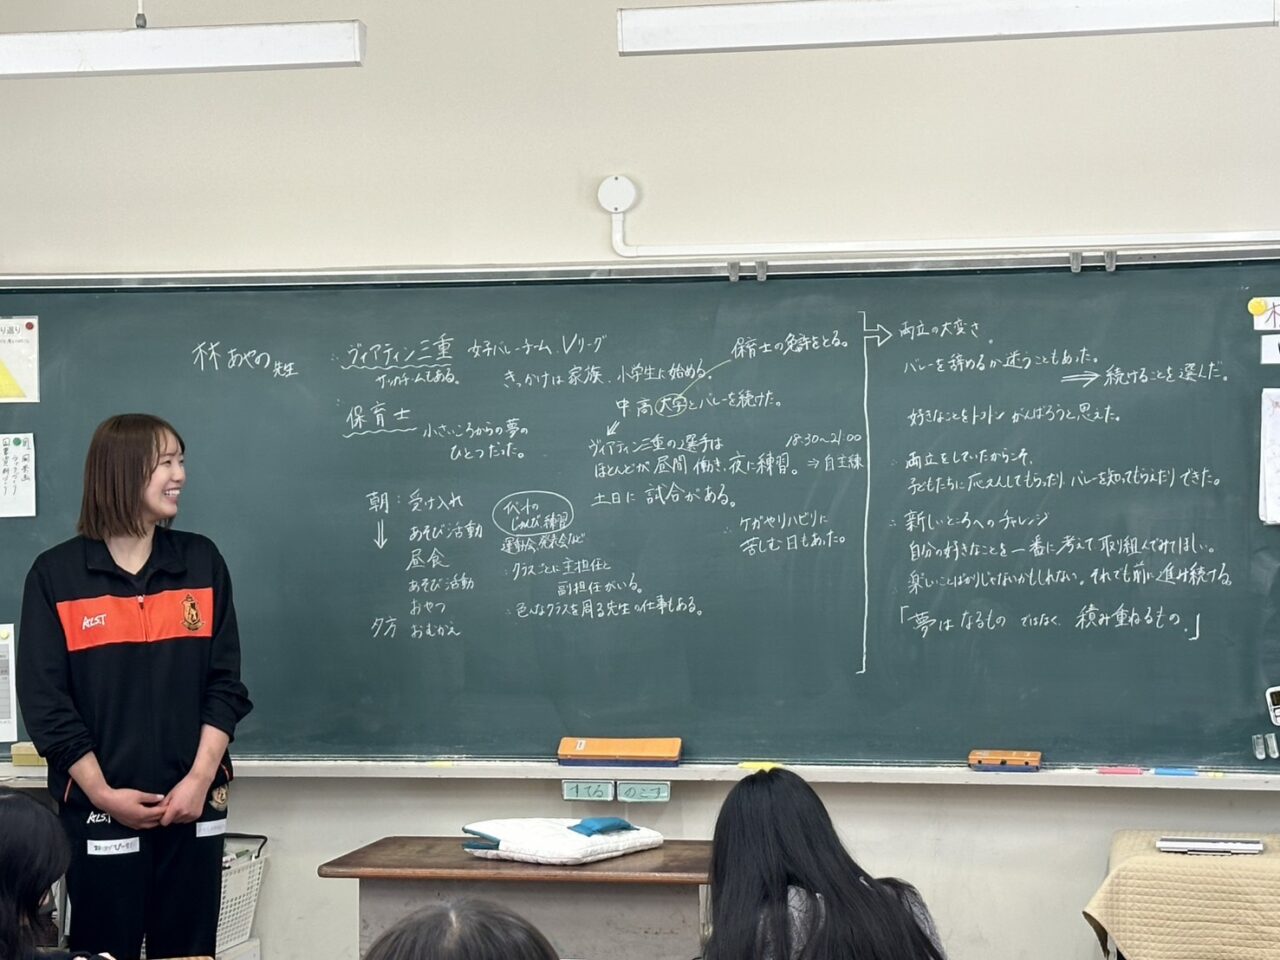 林あやの先生
ヴィアティン三重 女子バレーチーム、Vリーグ
サッカーチームもある。
きっかけは家族、小学生に始める。
保育士の免許をとる。
中高大学とバレーを続けた。
ヴィアティン三重の選手は
ほとんどが昼間働き、夜に練習。⇒自主練
18:30〜21:00
土日に試合がある。
ケガやリハビリに
苦しむ日もあった。
保育士
小さいころからの夢の
ひとつだった。
朝:受け入れ
あそび活動
昼食
あそび活動
おやつ
夕方 おむかえ
イベントの
じゅんび、練習
運動会、発表会など
クラスごとに主担任と
副担任がいる。
色んなクラスを周る先生の仕事もある。
両立の大変さ。
バレーを辞めるか迷うこともあった。
⇒続けることを選んだ。
好きなことをトコトンがんばろうと思えた。
両立をしていたからこそ、
子どもたちに応えんしてもらったりバレーを知ってもらえたりできた。
新しいところへのチャレンジ
自分の好きなことを一番に考えて取り組んでみてほしい。
楽しいことばかりじゃないかもしれない。それでも前に進み続ける。
「夢はなるものではなく、積み重ねるもの。」
ALST
ALST
すてる
のこす